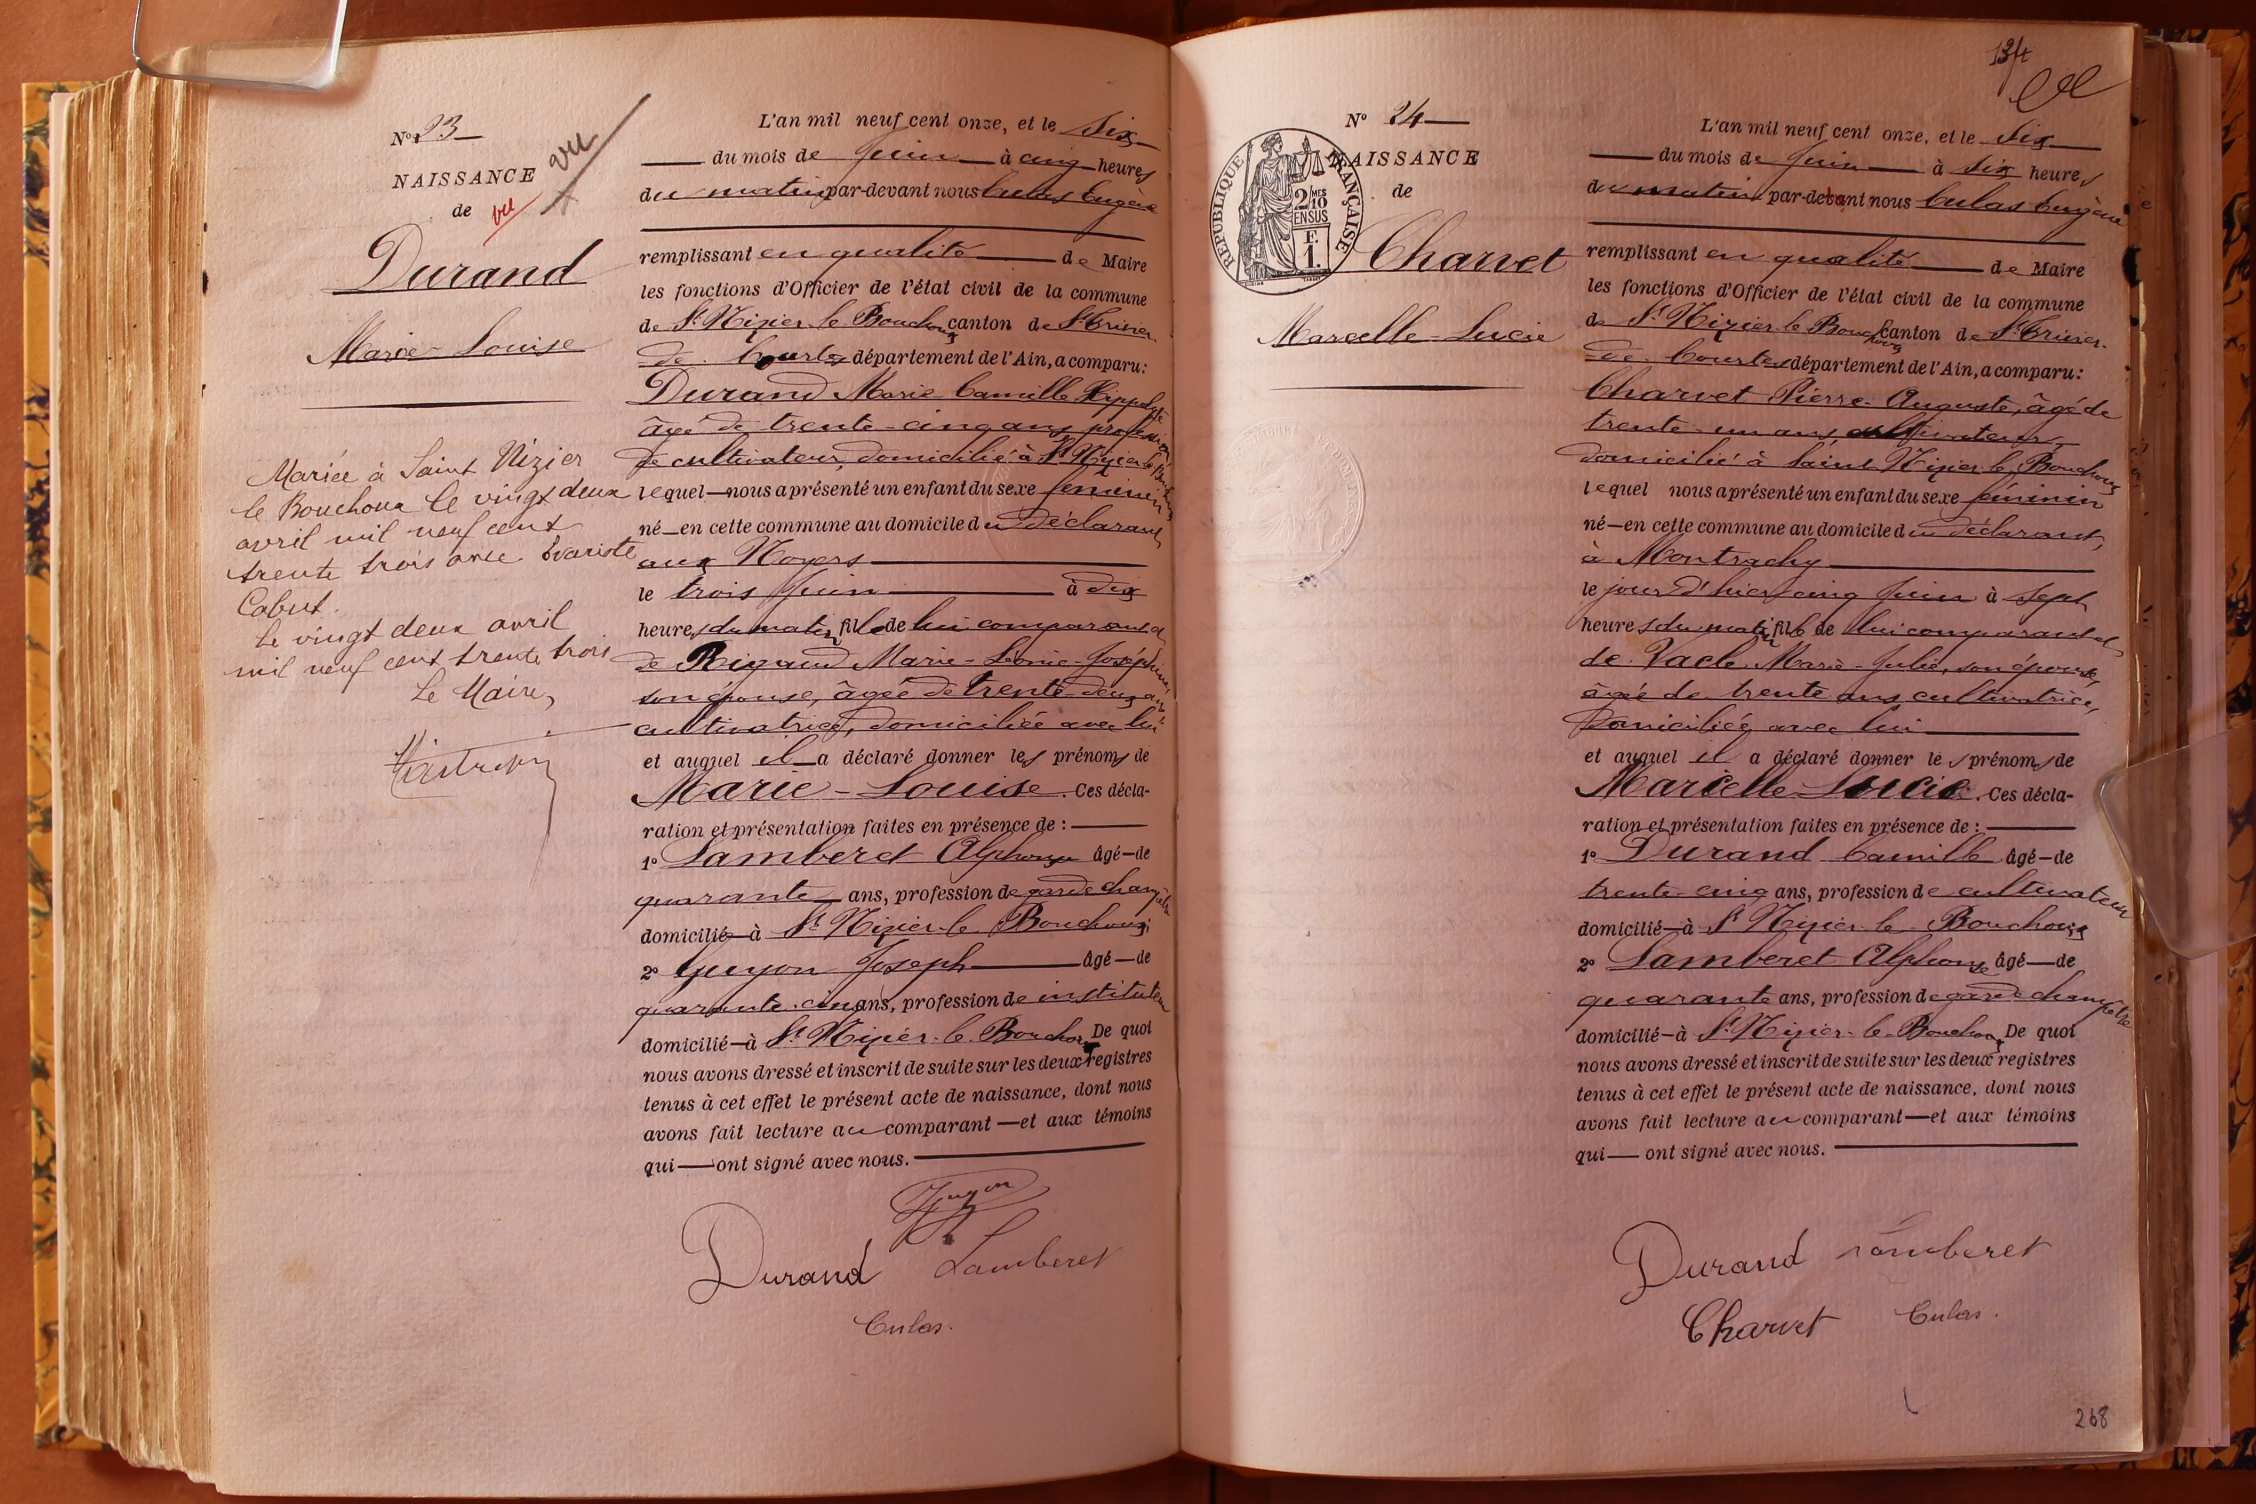 N° 23
NAISSANCE
de
vu
vu
Durand
Marie-Louise
Mariée à Saint Nizier
le Bouchoux le vingt deux
avril mil neuf cent
trente trois avec Evariste
Cabut.
Le vingt deux avril
mil neuf cent trente trois
Le Maire,
L'an mil neuf cent onze, et le six
du mois de Juin à cinq heures
du matin par-devant nous Culas Eugène
remplissant en qualité de Maire
les fonctions d'Officier de l'état civil de la commune
de St Nizier le Bouchoux canton de St Trivier
de Courtes département de l'Ain, a comparu:
Durand Marie Camille Hippolyte
âgé de trente-cinq ans, profession
de cultivateur, domicilié à St Nizier le Bouchoux
lequel nous a présenté un enfant du sexe féminin
né en cette commune au domicile du déclarant,
aux Noyers
le trois Juin à dix
heures du matin, fille de lui comparant et
de Rigaud Marie-Léonie-Joséphine,
son épouse, âgée de trente-deux ans
cultivatrice, domiciliée avec lui
et auquel il a déclaré donner les prénoms de
Marie-Louise. Ces décla-
ration et présentation faites en présence de :
1° Lamberet Alphonse âgé de
quarante ans, profession de garde champêtre
domicilié à St Nizier le Bouchoux;
2° Guyon Joseph âgé de
quarante-cinq ans, profession de instituteur
domicilié à St Nizier-le-Bouchoux De quoi
nous avons dressé et inscrit de suite sur les deux registres
tenus à cet effet le présent acte de naissance, dont nous
avons fait lecture au comparant et aux témoins
qui ont signé avec nous.
Guyon
Durand Lamberet
Culas.
134
N° 24
NAISSANCE
de
REPUBLIQUE FRANÇAISE
2 MES
10
EN SUS
F.
1.
Charvet
Marcelle-Lucie
L'an mil neuf cent onze, et le six
du mois de Juin à six heures
du matin par-devant nous Culas Eugène
remplissant en qualité de Maire
les fonctions d'Officier de l'état civil de la commune
de St Nizier-le-Bouchoux canton de St Trivier-
de-Courtes département de l'Ain, a comparu:
Charvet Pierre-Auguste, âgé de
trente-un ans, cultivateur,
domicilié à Saint Nizier-le-Bouchoux
lequel nous a présenté un enfant du sexe féminin
né en cette commune au domicile du déclarant,
à Montrachy
le jour d'hier cinq Juin à sept
heures du matin, fille de lui comparant et
de Vacle Marie-Julie, son épouse,
âgée de trente ans, cultivatrice,
domiciliée avec lui
et auquel il a déclaré donner les prénoms de
Marcelle-Lucie. Ces décla-
ration et présentation faites en présence de :
1° Durand Camille âgé de
trente-cinq ans, profession de cultivateur
domicilié à St Nizier-le-Bouchoux;
2° Lamberet Alphonse âgé de
quarante ans, profession de garde champêtre
domicilié à St Nizier-le-Bouchoux De quoi
nous avons dressé et inscrit de suite sur les deux registres
tenus à cet effet le présent acte de naissance, dont nous
avons fait lecture au comparant et aux témoins
qui ont signé avec nous.
Durand Lamberet
Charvet Culas.
268